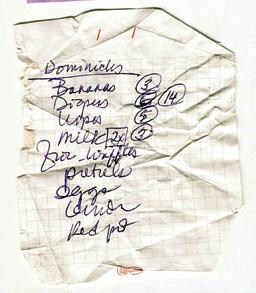 Dominicks
Bananas 3
Diapers 14
Wipes 5
Milk 2% 3
Froz-waffles
pretzels
eggs